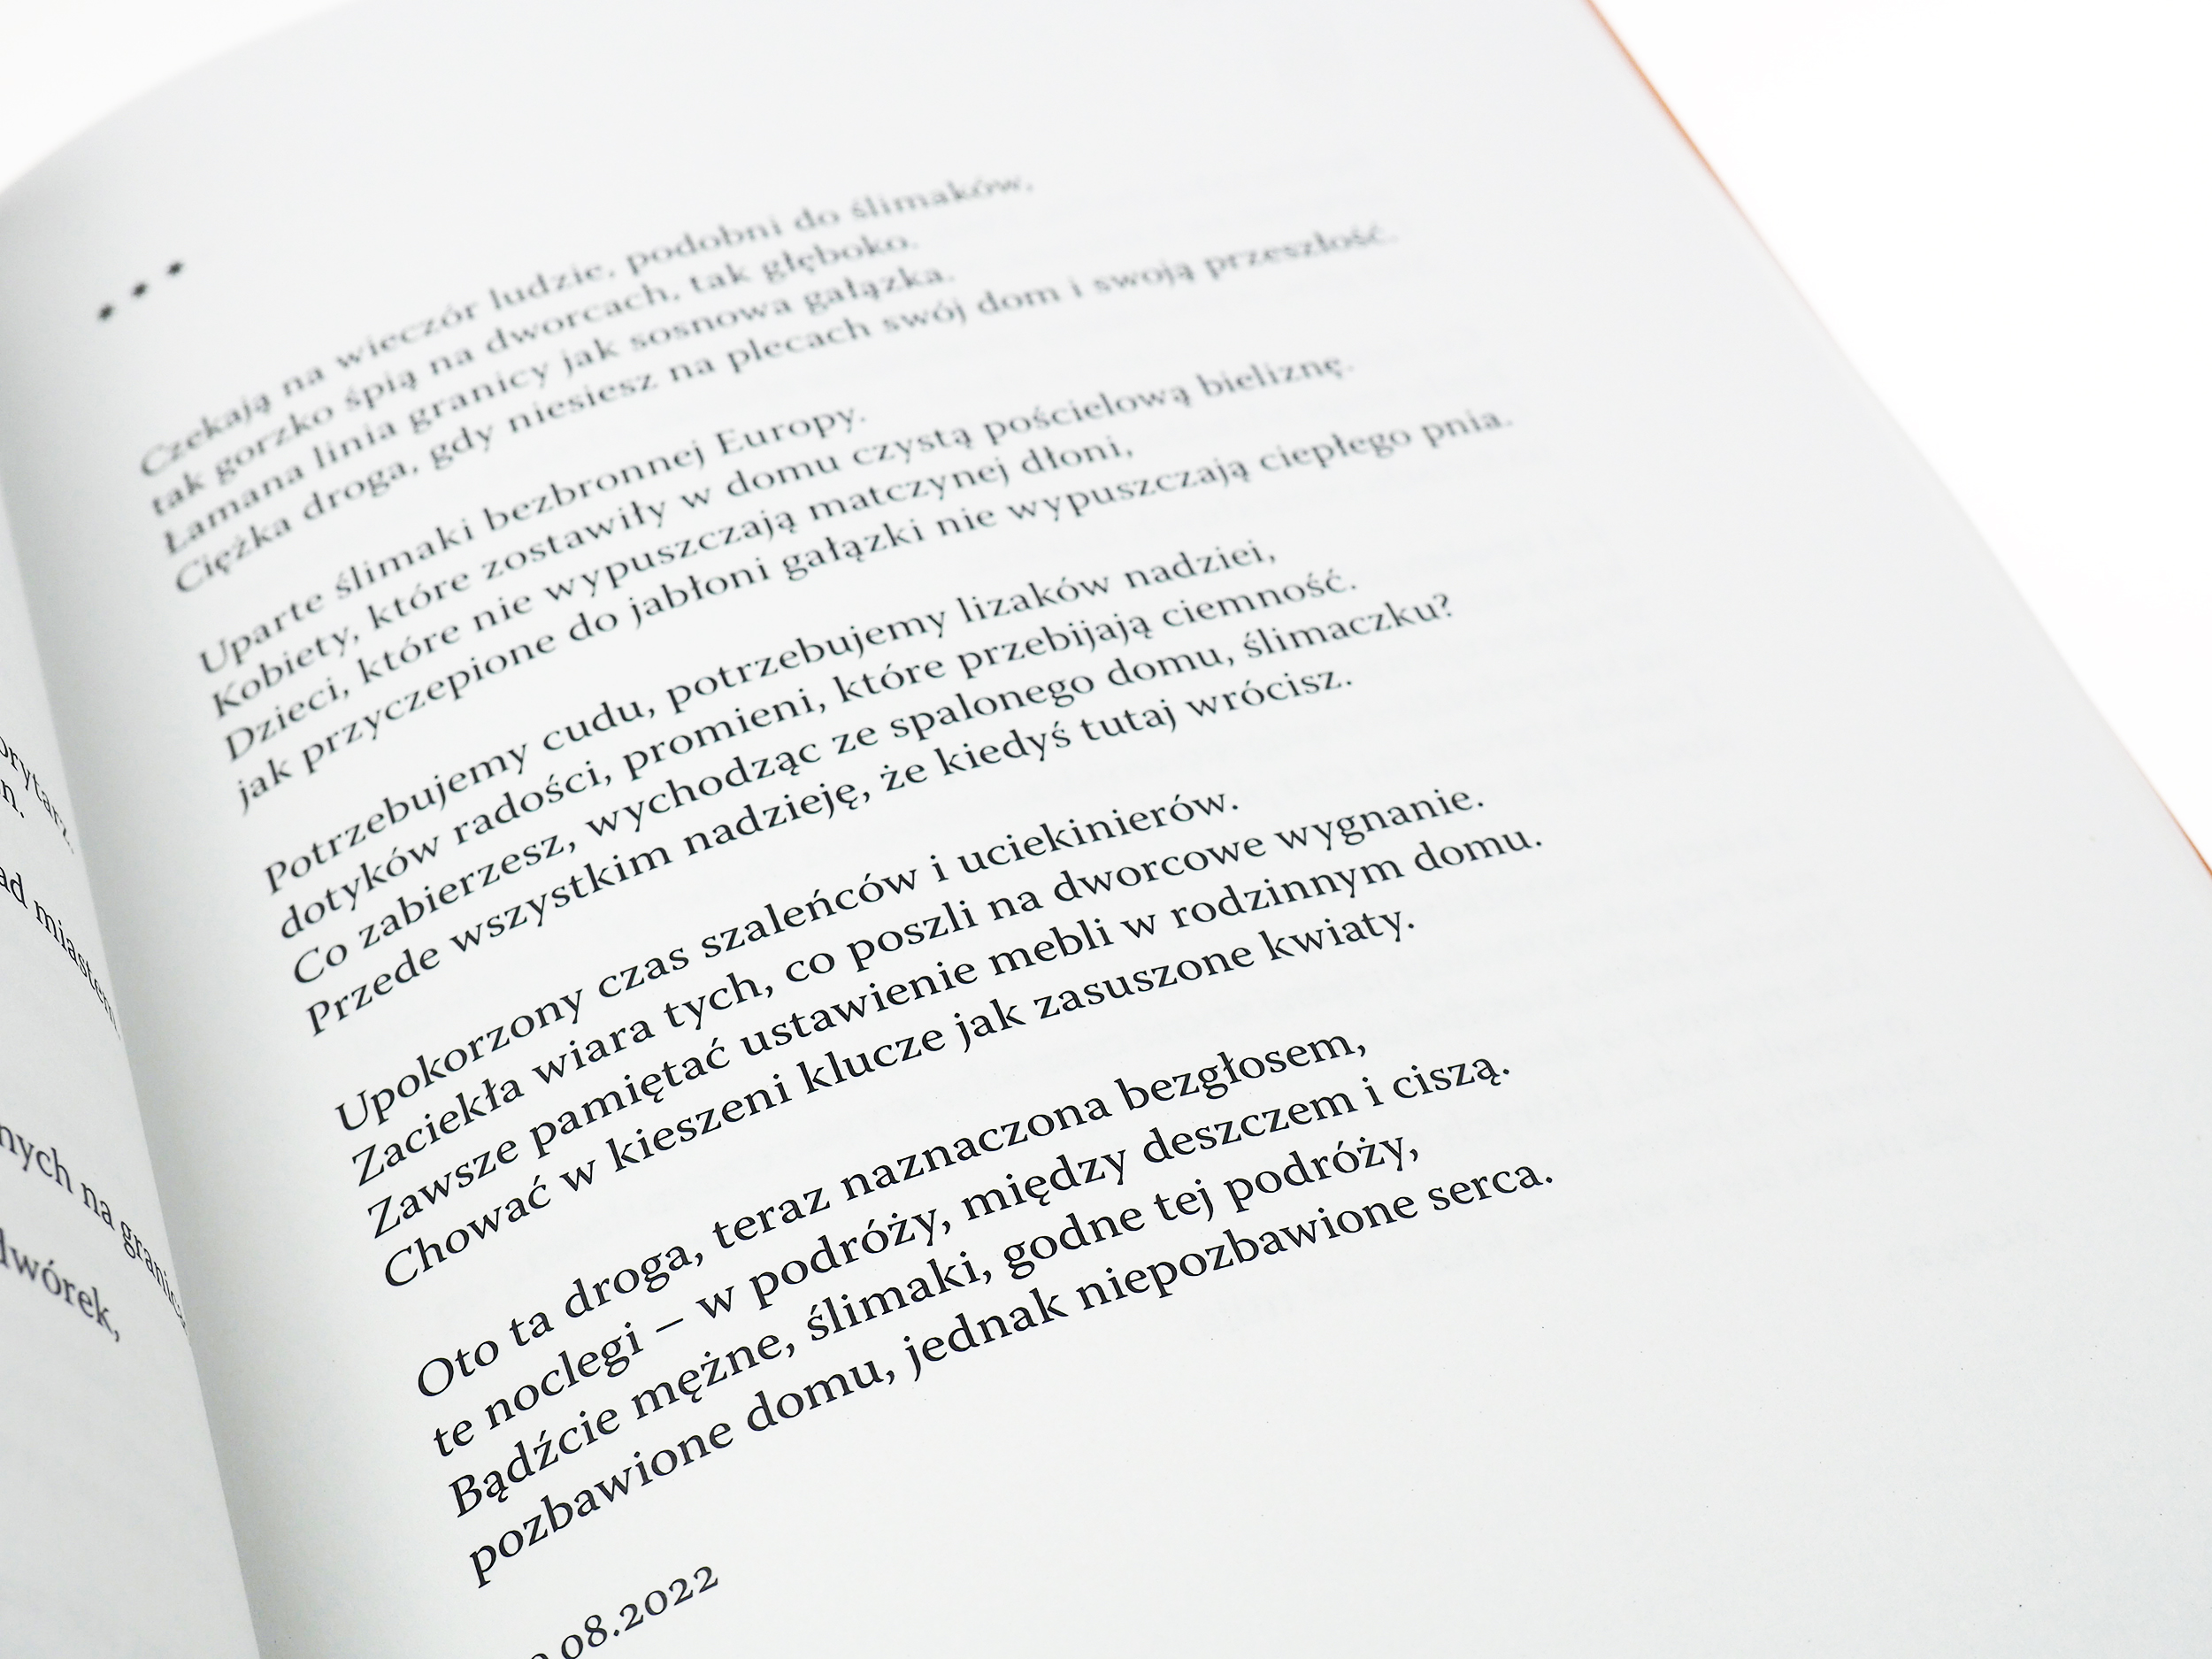 nych na
ad miastem
dwórek,
* * *
Czekają na wieczór ludzie, podobni do ślimaków,
tak gorzko śpią na dworcach, tak głęboko.
Łamana linia granicy jak sosnowa gałązka.
Ciężka droga, gdy niesiesz na plecach swój dom i swoją przeszłość.
Uparte ślimaki bezbronnej Europy.
Kobiety, które zostawiły w domu czystą pościelową bieliznę.
Dzieci, które nie wypuszczają matczynej dłoni,
jak przyczepione do jabłoni gałązki nie wypuszczają ciepłego pnia.
Potrzebujemy cudu, potrzebujemy lizaków nadziei,
dotyków radości, promieni, które przebijają ciemność.
Co zabierzesz, wychodząc ze spalonego domu, ślimaczku?
Przede wszystkim nadzieję, że kiedyś tutaj wrócisz.
Upokorzony czas szaleńców i uciekinierów.
Zaciekła wiara tych, co poszli na dworcowe wygnanie.
Zawsze pamiętać ustawienie mebli w rodzinnym domu.
Chować w kieszeni klucze jak zasuszone kwiaty.
Oto ta droga, teraz naznaczona bezgłosem,
te noclegi – w podróży, między deszczem i ciszą.
Bądźcie mężne, ślimaki, godne tej podróży,
pozbawione domu, jednak niepozbawione serca.
08.2022